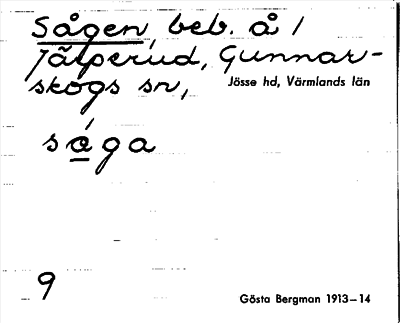 Sågen, beb. å /
Jälperud, Gunnar-
skogs sn,
Jösse hd, Värmlands län
sága
9
Gösta Bergman 1913–14